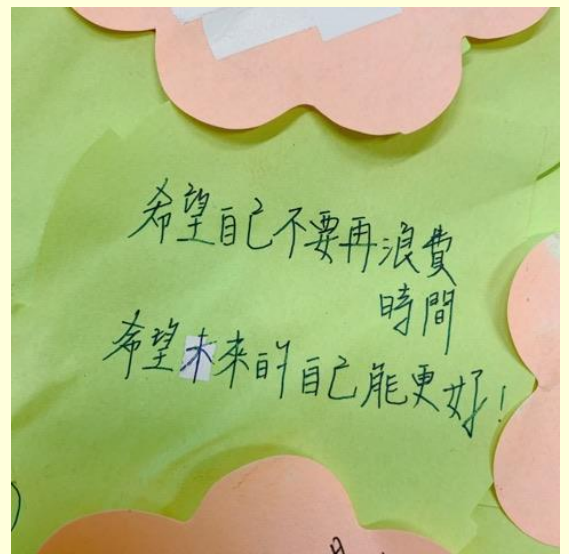 希望自己不要再浪費
時間
希望未來的自己能更好!